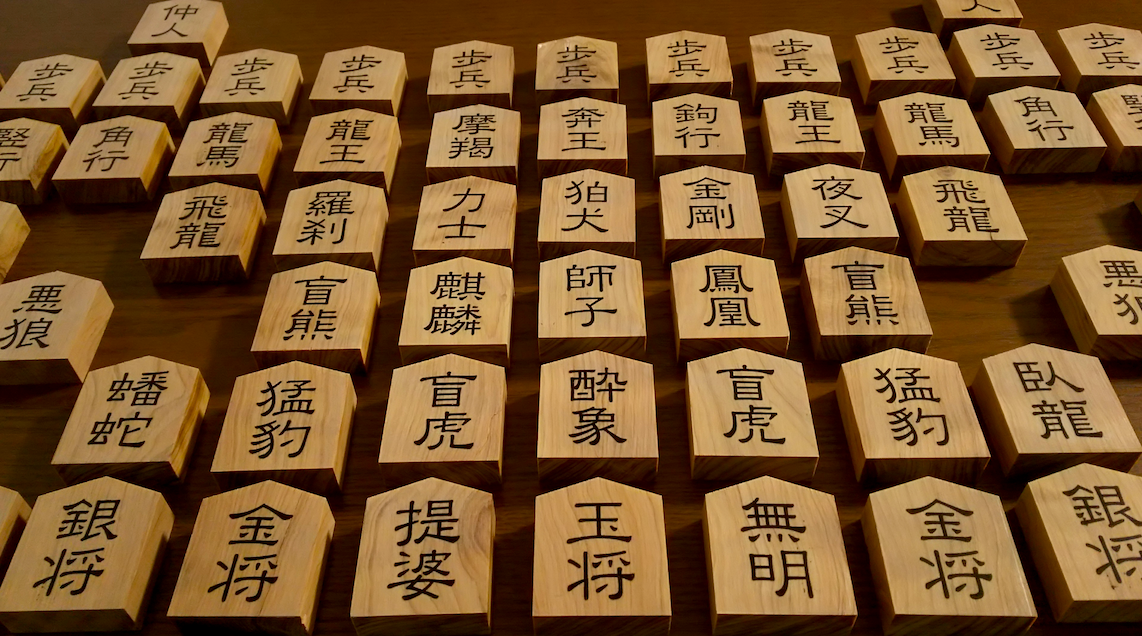 仲人 人
歩兵 歩兵 歩兵 歩兵 歩兵 歩兵 歩兵 歩兵 歩兵 歩兵 歩兵
竪行 角行 龍馬 龍王 摩羯 奔王 鉤行 龍王 龍馬 角行
飛龍 羅刹 力士 狛犬 金剛 夜叉 飛龍
悪狼 盲熊 麒麟 師子 鳳凰 盲熊 悪狼
蟠蛇 猛豹 盲虎 酔象 盲虎 猛豹 臥龍
銀将 金将 提婆 玉将 無明 金将 銀将